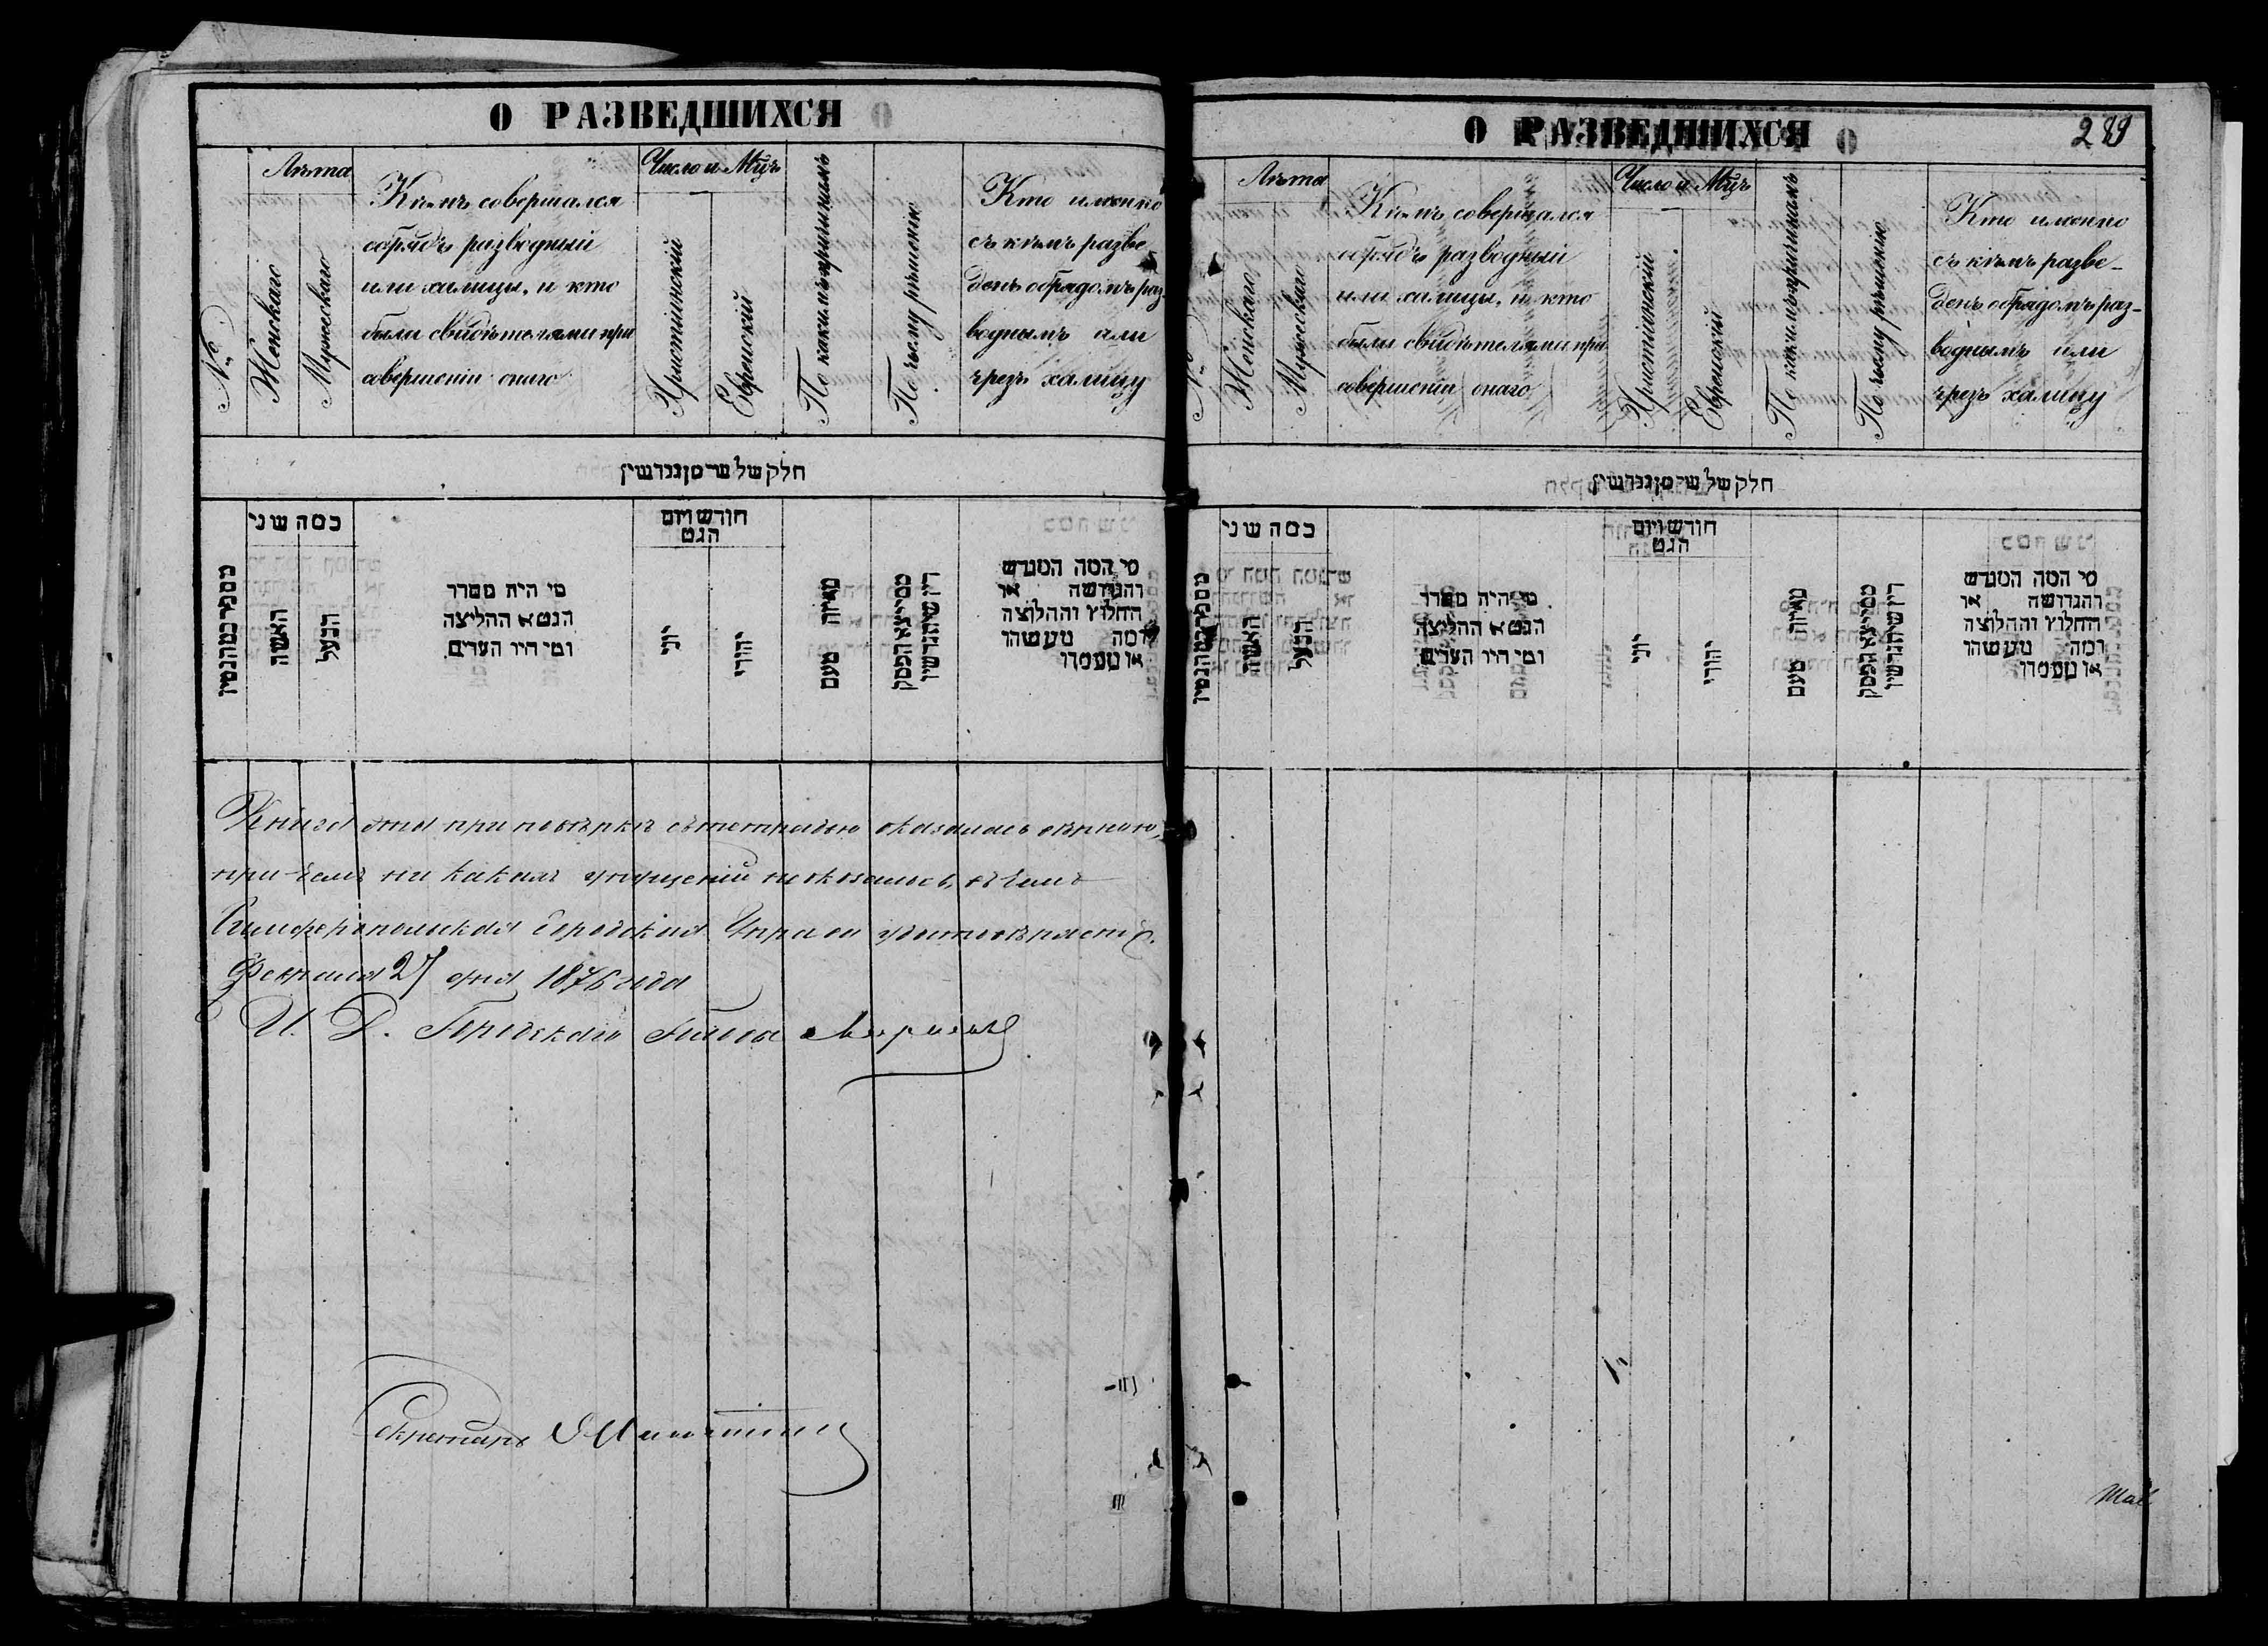 О РАЗВЕДШИХСЯ
№
Лѣта
Женскаго
Мужескаго
Кѣмъ совершался
обрядъ разводный
или халицы, и кто
были свидѣтелями при
совершеніи онаго
Число и Мцъ
Христіянскій
Еврейскій
По какимъ причинамъ
По чьему рѣшенію
Кто именно
съ кѣмъ разве-
денъ обрядомъ раз-
воднымъ или
чрезъ халицу
חלק של
כמה שני
האשה
הבעל
מי היה מסדר
הגט א ההליצה
ומי היו העדים
חודש ויום
הגט
יוני
יהודי
מאיזה טעם
ממי יצא הפסק
דין שיתגרשו
מי המה המגרש
והגרושה או
החלוץ וההלוצה
ומה מעשהו
או מעמדו
Книга эта при повѣркѣ съ тетрадью оказалась вѣрною,
при чемъ ни какихъ упущеній не оказалось, въ чемъ
Симферопольская Городская Управа удостовѣряетъ.
Февраля 27 дня 1876 года
И. Д. Городскаго Головы
Секретарь
О РАЗВЕДШИХСЯ
289
№
Лѣта
Женскаго
Мужескаго
Кѣмъ совершался
обрядъ разводный
или халицы, и кто
были свидѣтелями при
совершеніи онаго
Число и Мцъ
Христіянскій
Еврейскій
По какимъ причинамъ
По чьему рѣшенію
Кто именно
съ кѣмъ разве-
денъ обрядомъ раз-
воднымъ или
чрезъ халицу
חלק של
כמה שני
האשה
הבעל
מי היה מסדר
הגט א ההליצה
ומי היו העדים
חודש ויום
הגט
יוני
יהודי
מאיזה טעם
ממי יצא הפסק
דין שיתגרשו
מי המה המגרש
והגרושה או
החלוץ וההלוצה
ומה מעשהו
או מעמדו